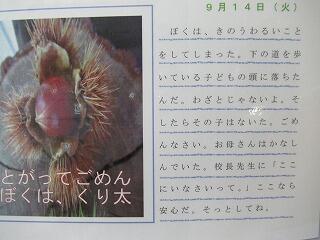 9月14日（火）
ぼくは、きのうわるいこと
をしてしまった。下の道を歩
いている子どもの頭に落ちた
んだ。わざとじゃないよ。そ
したらその子はないた。ごめ
んなさい。お母さんはかなし
んでいた。校長先生に「ここ
にいなさいって。」ここなら
安心だ。そっとしてね。
とがってごめん
ぼくは、くり太